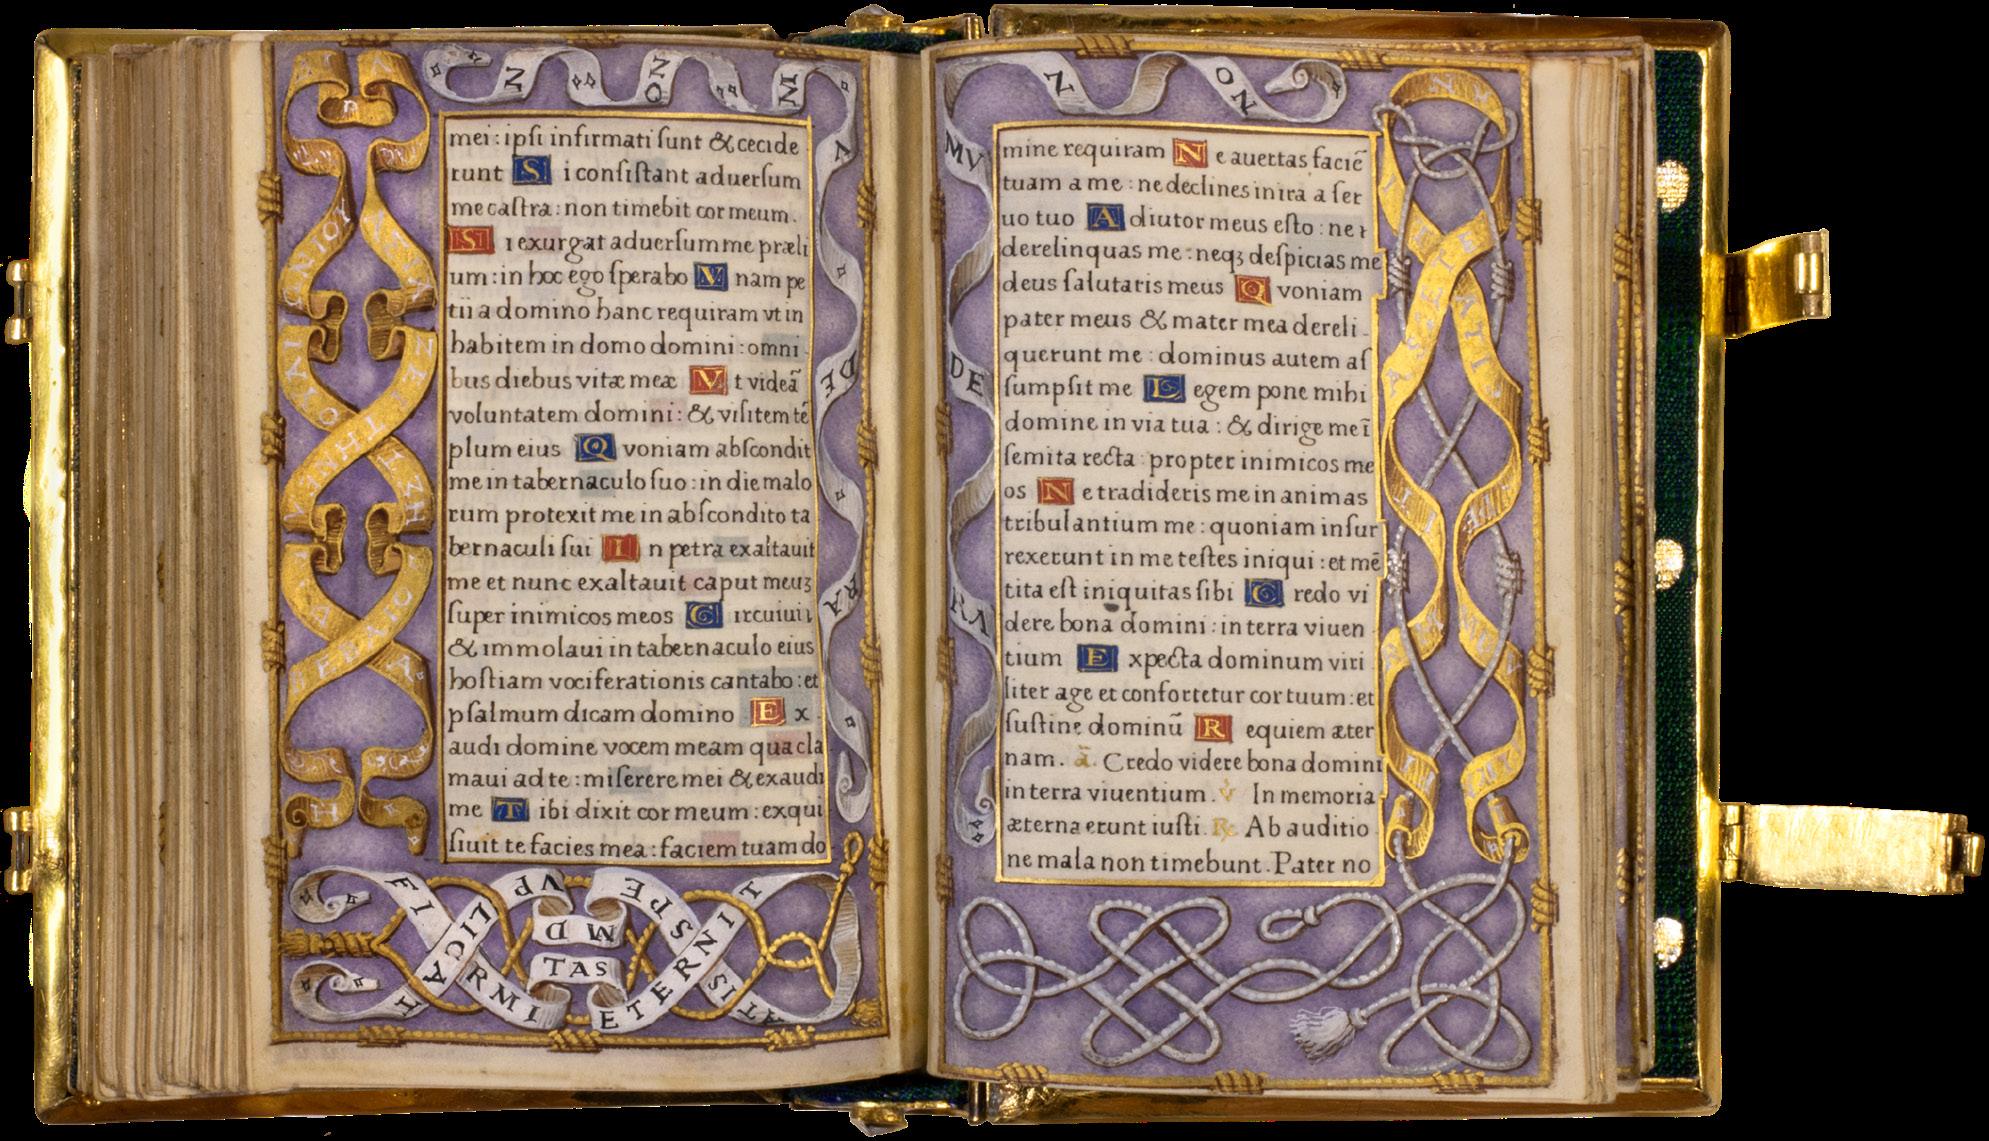 mei : ipſi infirmati ſunt & cecide
runt S i conſiſtant aduerſum
me caſtra : non timebit cor meum .
S i exurgat aduerſum me præli
um : in hoc ego ſperabo V nam pe
tii a domino hanc requiram vt in
habitem in domo domini : omni
bus diebus vitæ meæ V t videā
voluntatem domini : & viſitem tē
plum eius Q voniam abſcondit
me in tabernaculo ſuo : in die malo
rum protexit me in abſcondito ta
bernaculi ſui I n petra exaltauit
me et nunc exaltauit caput meuꝫ
ſuper inimicos meos C ircuiui
& immolaui in tabernaculo eius
hoſtiam vociferationis cantabo : et
pſalmum dicam domino E x
audi domine vocem meam qua cla
maui ad te : miſerere mei & exaudi
me T ibi dixit cor meum : exqui
ſiuit te facies mea : faciem tuam do
N ON M V DE RA
FIRMI TAS ETERNIT
mine requiram N e auertas faciē
tuam a me : ne declines in ira a ſer
uo tuo A diutor meus eſto : ne
derelinquas me : neqꝫ deſpicias me
deus ſalutaris meus Q voniam
pater meus & mater mea dereli
querunt me : dominus autem aſ
ſumpſit me L egem pone mihi
domine in via tua : & dirige me ī
ſemita recta propter inimicos me
os N e tradideris me in animas
tribulantium me : quoniam inſur
rexerunt in me teſtes iniqui : et mē
tita eſt iniquitas ſibi C redo vi
dere bona domini : in terra viuen
tium E xpecta dominum viri
liter age et confortetur cor tuum : et
ſuſtine dominū R equiem æter
nam . ā. Credo videre bona domini
in terra viuentium . v̇ In memoria
æterna erunt iuſti . ℞. Ab auditio
ne mala non timebunt . Pater no
N ON MV DE RA